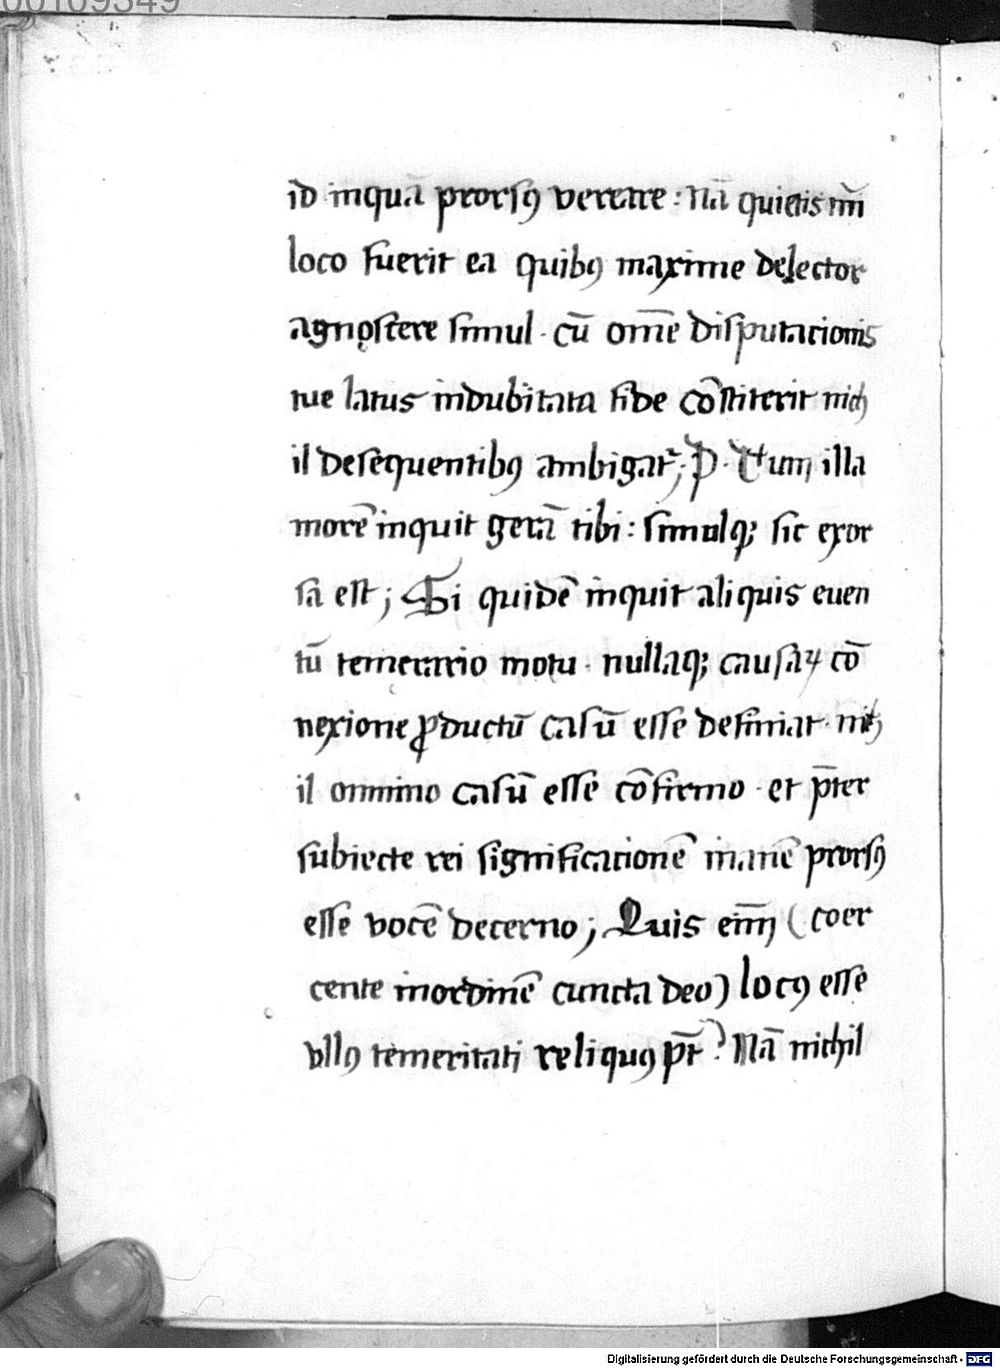 00109349
id inquā prorsꝰ verere : Nā quietis m̄i
loco fuerit ea quibꝰ maxime delector
agnoscere simul · cū om̄e disputacionis
tue latus indubitata fide cōstiterit nich
il de sequentibꝰ ambigat᷑; P · Tum illa
morē inquit gerā tibi : simulqꝫ sic exor
sa est ; Si quidē inquit aliquis euen
tū temerario motu · nullaqꝫ causaꝝ cō
nexione ꝓductū casū esse definiat · nich
il omnino casū esse cōfirmo · et p̄ter
subiecte rei significacionē inanē prorsꝰ
esse vocē decerno ; Quis eni̅m (coer
cente inordinē cuncta deo) locꝰ esse
vllꝰ temeritati reliquꝰ pt̄ ? Nā nichil
Digitalisierung gefördert durch die Deutsche Forschungsgemeinschaft - DFG